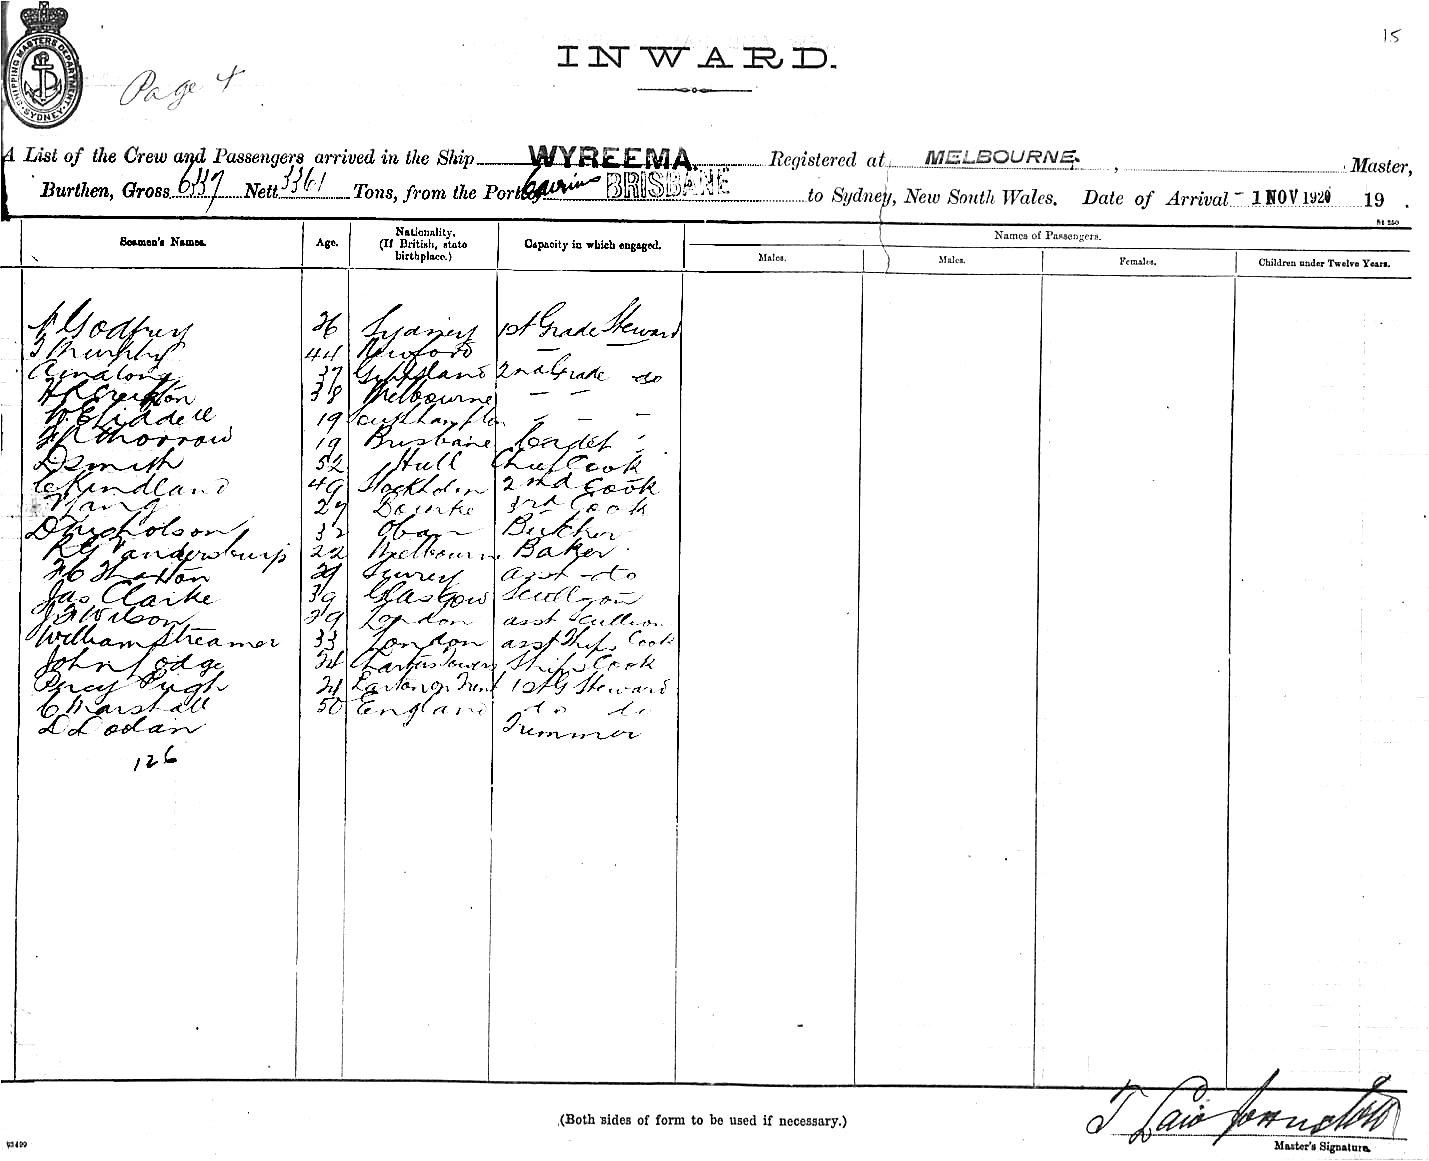 15
INWARD.
SHIPPING MASTERS DEPARTMENT SYDNEY
Page 4
A List of the Crew and Passengers arrived in the Ship WYREEMA. Registered at MELBOURNE, Master,
Burthen, Gross 6337 Nett 3361 Tons, from the Port of Cairns BRISBANE to Sydney, New South Wales. Date of Arrival - 1 NOV 1920 19 .
Seamen's Names. Age. Nationality. (If British, state birthplace.) Capacity in which engaged. Names of Passengers.
Males. Males. Females. Children under Twelve Years.
Godfrey 26 Sydney 1st Grade Steward
T Murphy 44
37 Gippsland 2nd Grade do
38 Melbourne — —
W E Liddell 19 Southampton - - -
19 Brisbane Cadet
D Smith 52 Hull Chief Cook
49 Stockholm 2nd Cook
27 Bourke 3rd Cook
D Nicholson 32 Oban Butcher
22 Melbourne Baker
Surrey asst do
Jas Clarke 39 Glasgow Scullyon
Wilson 29 London asst Scullion
William Streamer 33 London asst Ships Cook
John Lodge 24 Charters Towers Ships Cook
Percy Pugh 24 1st G Steward
C Marshall 50 England do do
Trimmer
126
(Both sides of form to be used if necessary.)
Master's Signature.